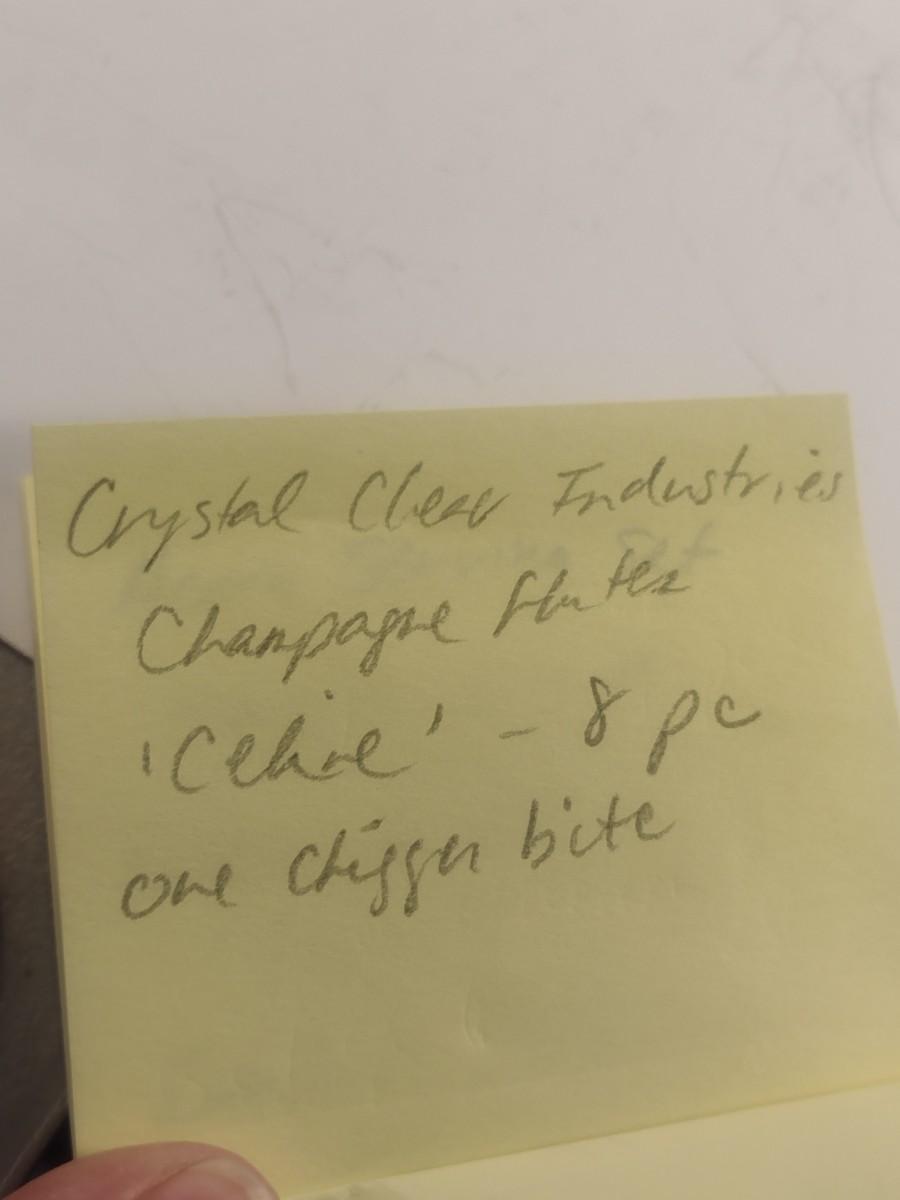 Crystal Clear Industries
Champagne flutes
'Celine' - 8 pc
one chigger bite